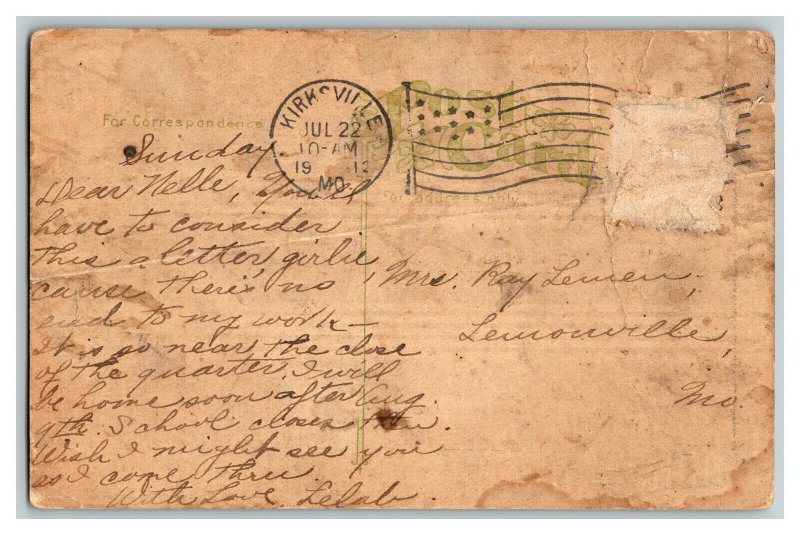 Post
Card
For Correspondence
For address only
KIRKSVILLE
JUL 22
10-AM
19 12
MO.
Sunday
Dear Nelle, You'll
have to consider
this a letter, girlie
cause there's no
end to my work—
It is so near the close
of the quarter I will
be home soon after Aug.
9th. School closes then.
Wish I might see you
as I come thru
With Love
Mrs. Ray Lemen,
Lemonville,
Mo.